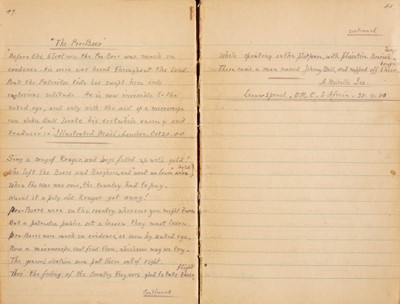 "The Pro-Boers"
"Before the Election the Pro Boer was much in
evidence. His voice was heard throughout the land.
But the Patriotic tide has swept him into
mysterious solitude. He is now invisible to the
naked eye, and only with the aid of a microscope
can John Bull locate his
"Illustrated Mail", London Oct 20.00
Sing a song of Kruger, and bags filled up with gold!
He left the Boers and Burghers, and went
When the war was over, the Country had to pay.
wasn't it a pity old Kruger got away!
Pro-Boers were in the Country wherever you might
But a patriotic public set a lesson they must learn.
Pro-Boers were much in evidence, as seen by naked eye,
Now a microscope can't find them, whichever way we try.
The general election soon put them out of sight.
the feeling of the Country they were glad to take
flight
Continued
continued
While spouting on the Platform, with plaintive Boerish
There came a man named Johnny Bull, and nipped off their